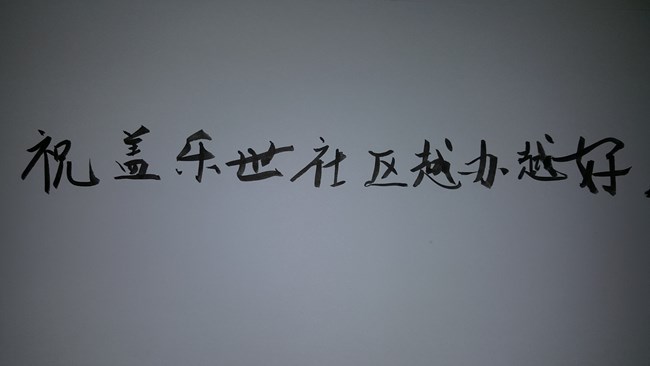 祝盖乐世社区越办越好